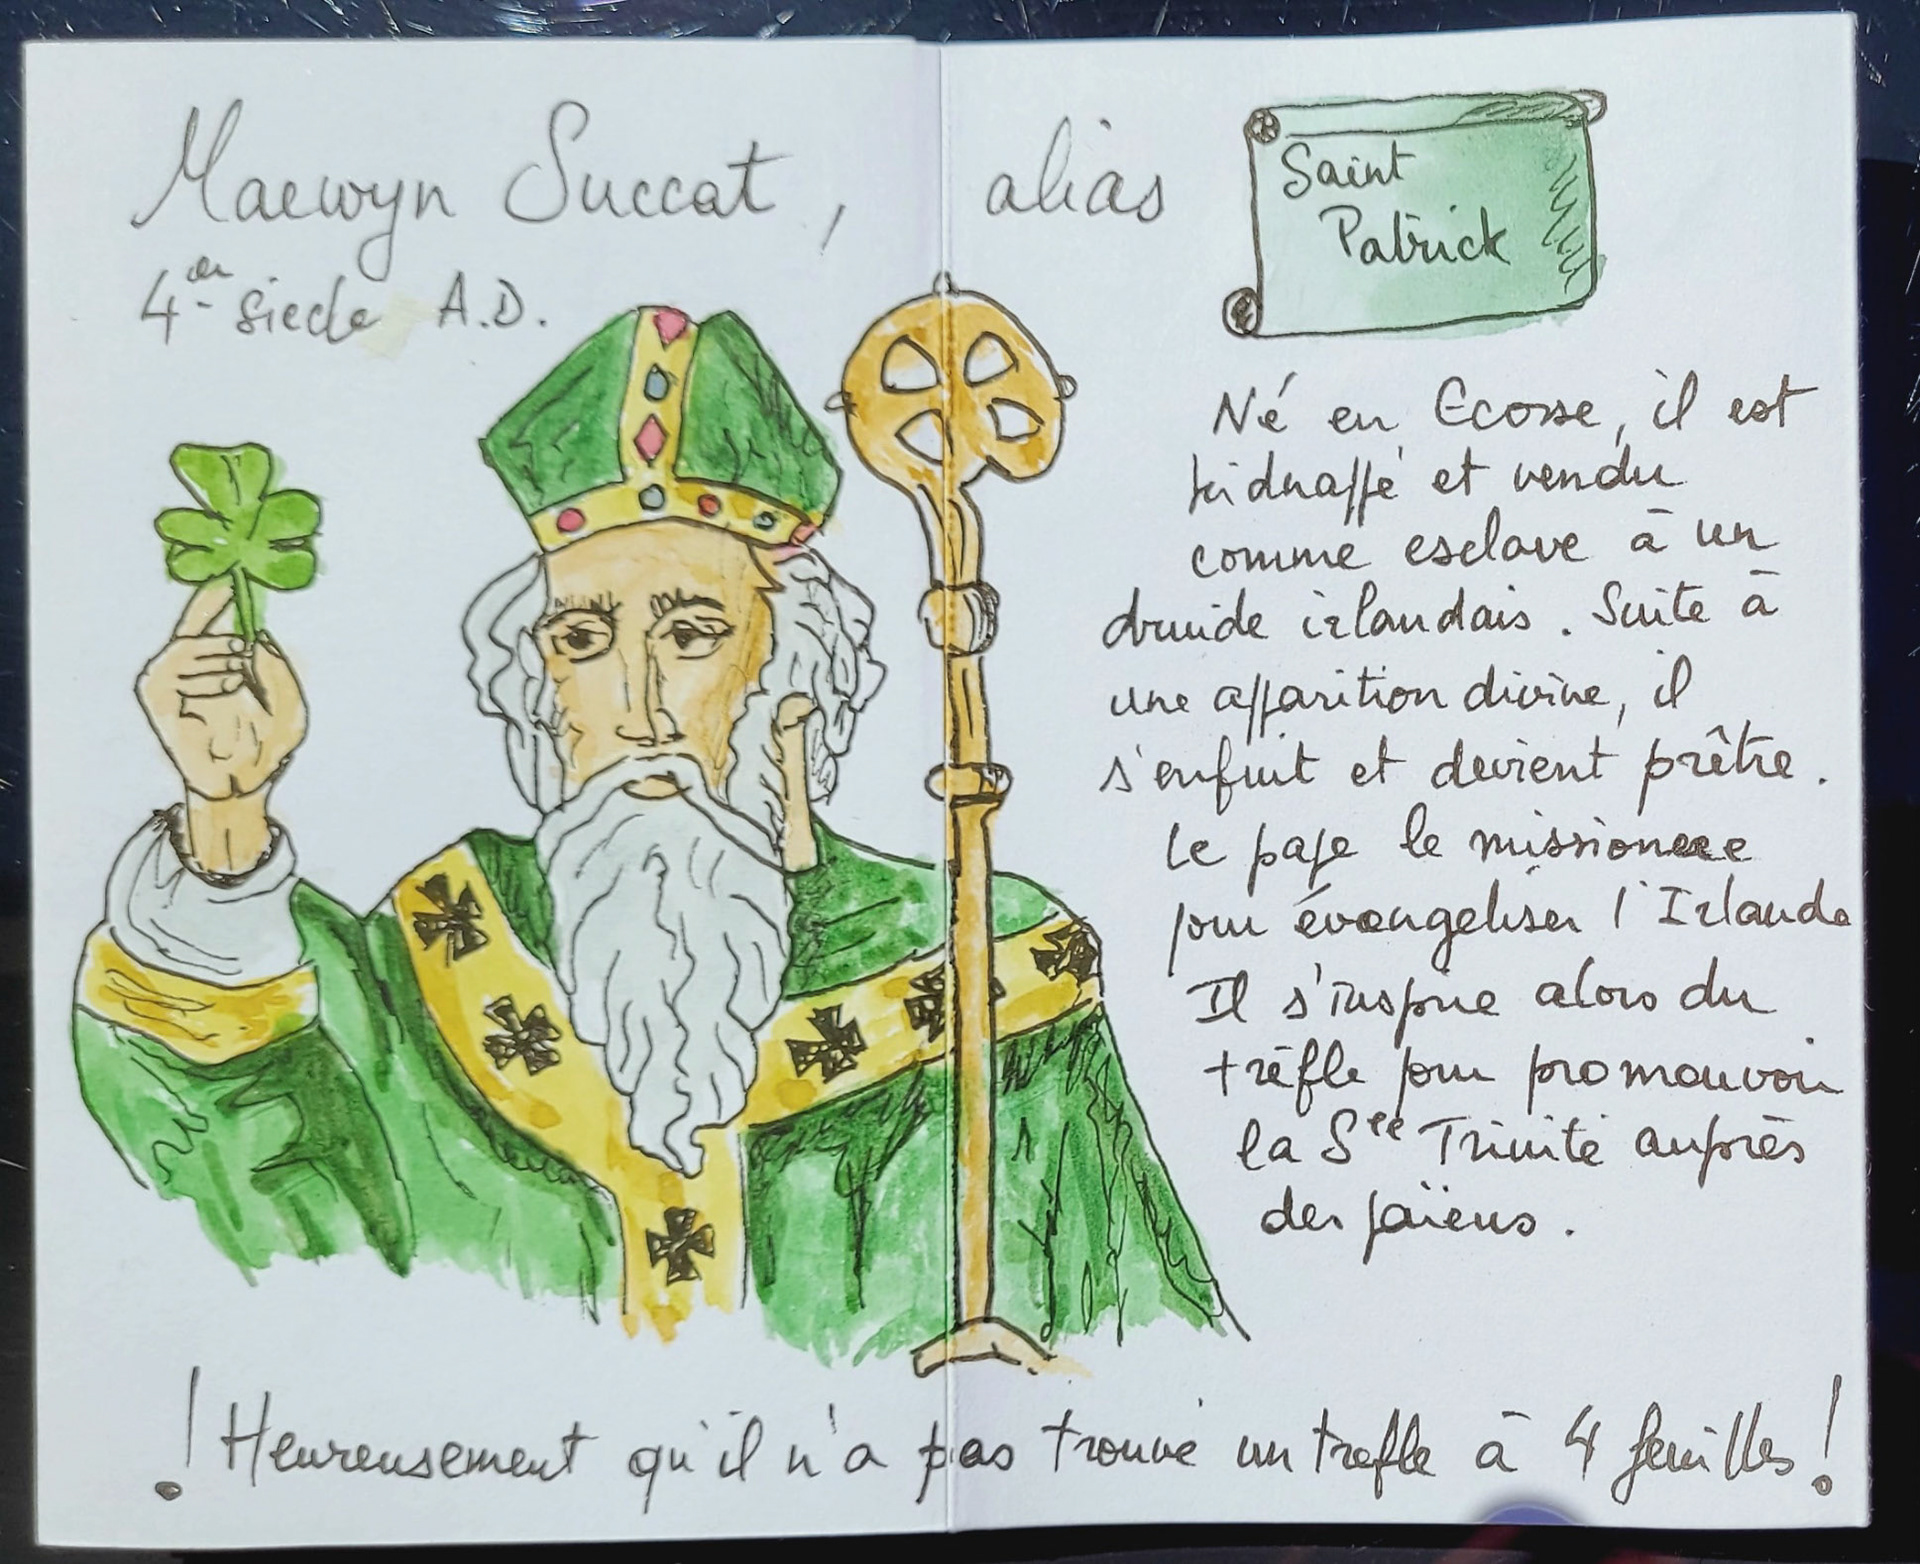 Maewyn Succat, alias
Saint
Patrick
4er siecle A.D.
Né en Ecosse, il est
kidnappé et vendu
comme esclave à un
druide irlandais. Suite à
une apparition divine, il
s'enfuit et devient prêtre.
Le pape le missionere
pour évangeliser l'Irlande
Il s'inspire alors du
trèfle pour promouvoir
la Stee Trinité auprès
des païens.
! Heureusement qu'il n'a pas trouvé un trefle à 4 feuilles !